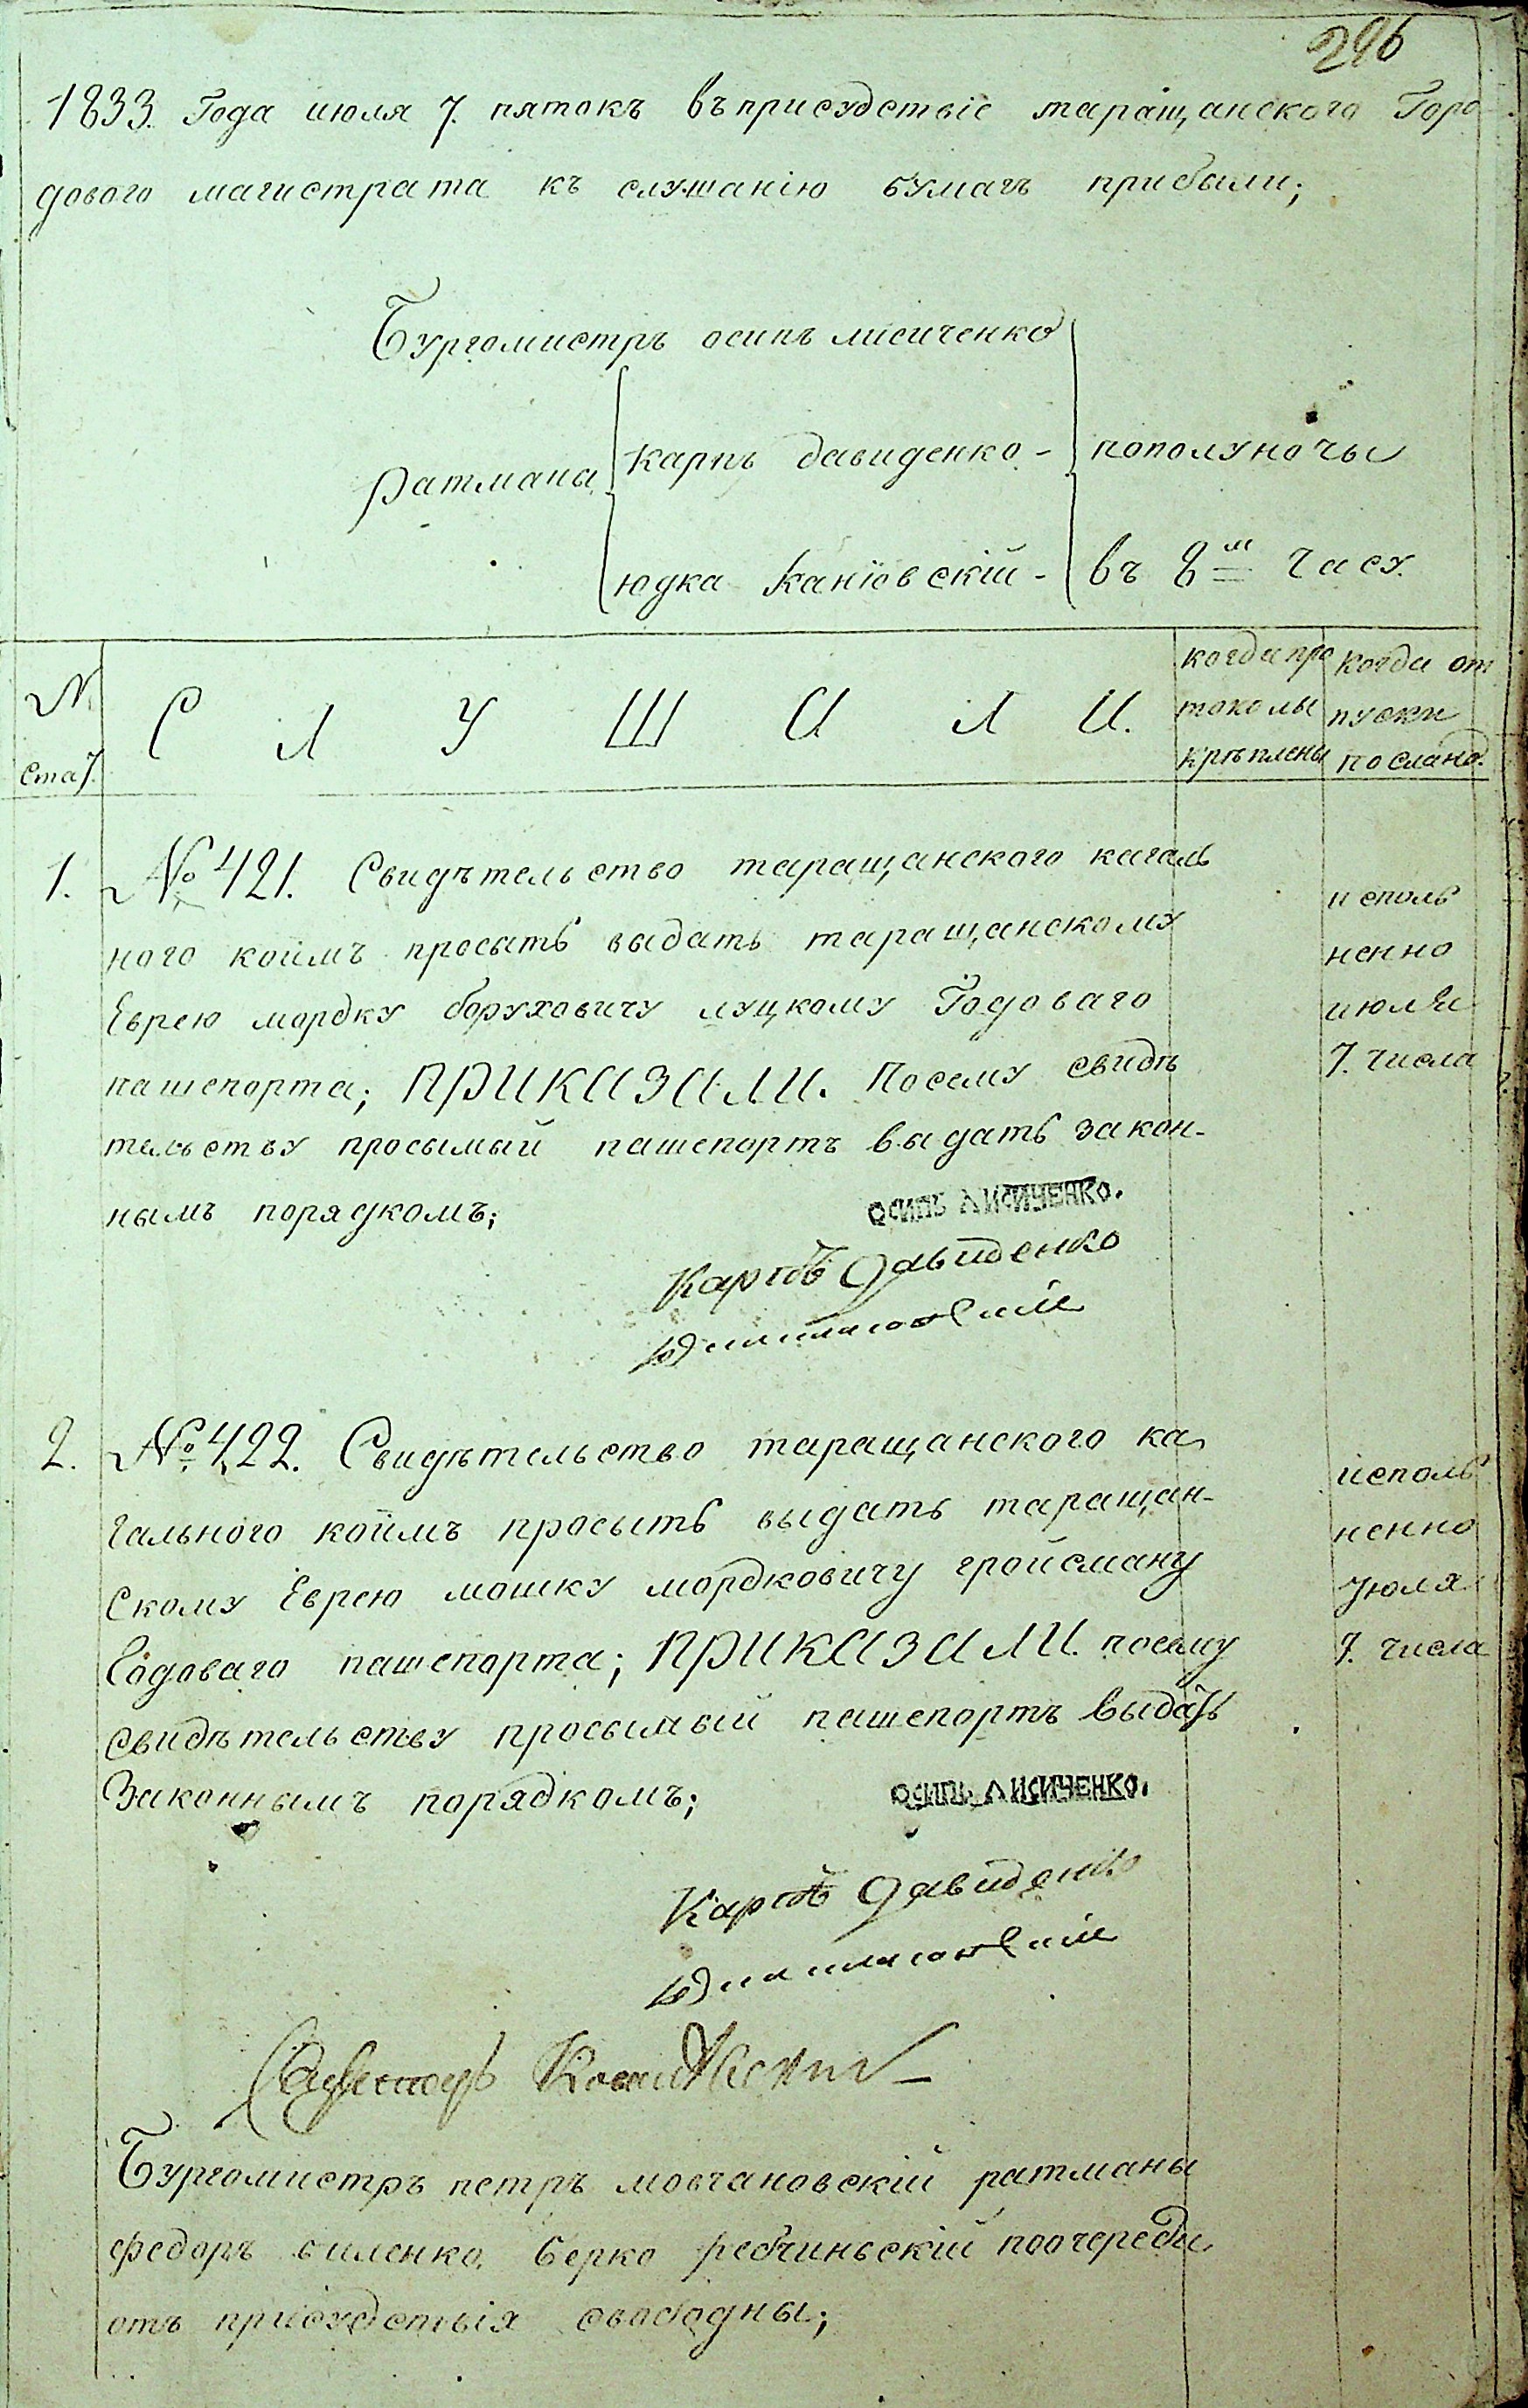 296
1833. Года июля 7. пятокъ въ присудствіе таращанского Горо
дового магистрата къ слушанію бумагъ прибыли;
Бургомистръ осипъ лисиченко
ратмана карпъ давиденко - пополуночы
юдка каніовскій - въ 8м часу.
№ ста7.
С Л У Ш А Л И.
когда про
токолы
крѣплены
когда от
пуски
послано.
1. №421. Свидѣтельство таращанского кагаль
ного коимъ просыть выдать таращанскому
Еврею мордку боруховичу луцкому Годоваго
пашепорта; ПРИКАЗАЛИ. Посему свидѣ
тельству просымый пашепортъ выдать закон-
нымъ порядкомъ;
исполь
ненно
июля
7. числа
ОСИПЪ ЛИСИЧЕНКО.
Карпъ Давиденко
2. №422. Свидѣтельство таращанского ка
гального коимъ просыть выдать таращан-
скому Еврею мошку мордковичу гройсману
Годоваго пашепорта; ПРИКАЗАЛИ. посему
свидѣтельству просымый пашепортъ выдать
Законнымъ порядкомъ;
исполь
ненно
июля
7. числа
ОСИПЪ ЛИСИЧЕНКО.
Карпъ Давиденко
Бургомистръ петръ мовчановскій ратманы
федоръ биленко, берко ребчиньскій поочереди
отъ присудствія свободны;